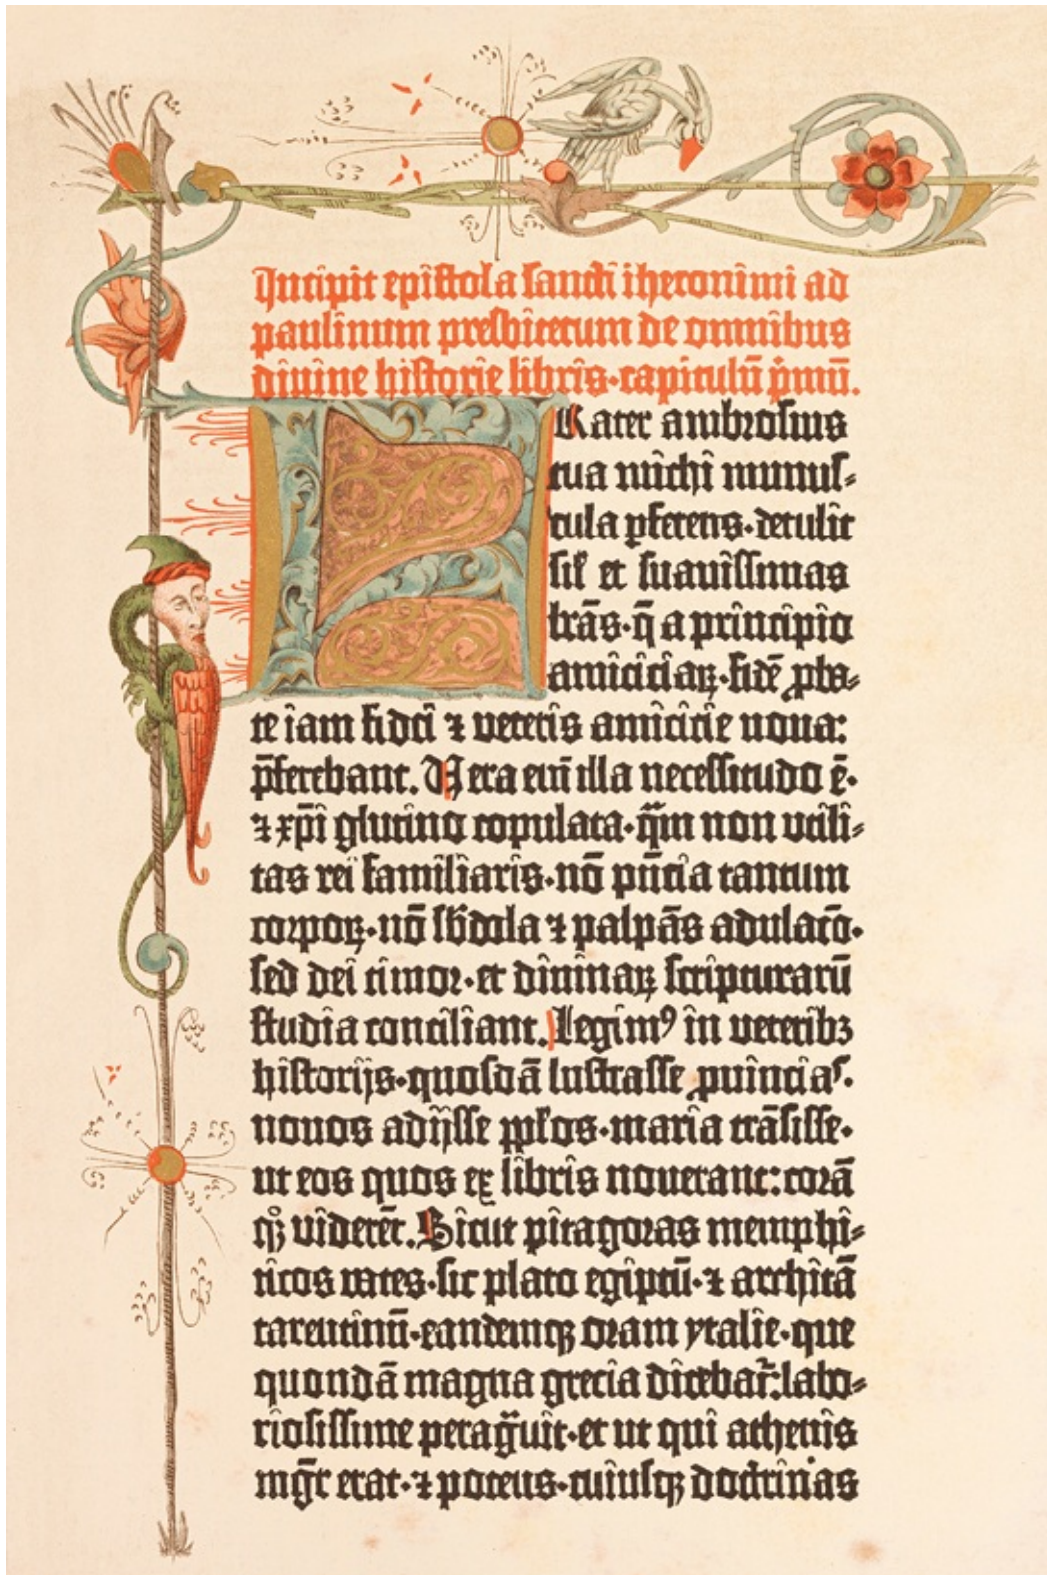 Incipit epistola sancti iheronimi ad
paulinum presbiterum de omnibus
divine historie libris·capitulū p̄mū.
Frater ambrosius
tua michi munus⸗
cula pferens·detulit
sil̄ et suavissimas
lr̄as·q̄ a principio
amiciciaꝝ·fidē ꝓba⸗
te iam fidei ⁊ veteris amicicie nova:
p̄ferebant. Vera eni͂ illa necessitudo ē·
⁊ xp̄i glutino copulata·qͣm non utili⸗
tas rei familiaris·nō pn̄cia tantum
corpoꝝ·nō sb̄dola ⁊ palpās adulacō·
sed dei timor·et divinaꝝ scripturarū
studia conciliant. Legimꝰ in veteribꝫ
historijs·quosdā lustrasse ꝓvincias·
novos adijsse ppl̄os·maria trāsisse·
ut eos quos ex libris noverant: corā
qꝫ viderēt. Sicut pitagoras memphi⸗
ticos vates·sic plato egiptū·⁊ architā
tarentinū·eandemqꝫ oram ytalie·que
quondā magna grecia dicebat̄: labo⸗
riosissime peragͣvit·et ut qui athenis
mgr̄ erat·⁊ potens·cuiusqꝫ doctrinas